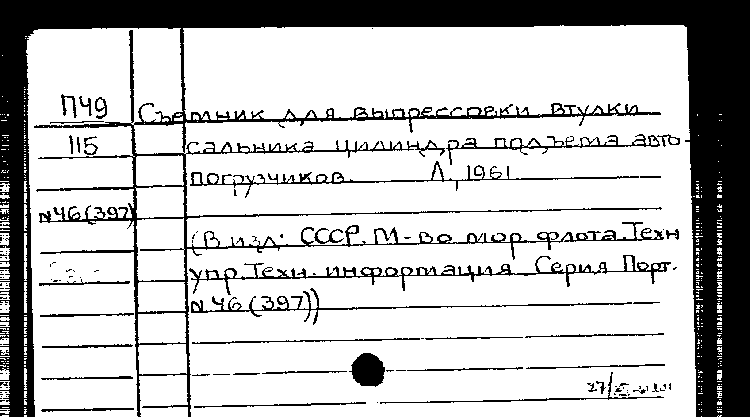 П49 Съемник для выпрессовки втулки
115 сальника цилиндра подъема авто-
погрузчиков. Л., 1961
N46(397)
(В изд: СССР. М-во мор флота. Техн
упр. Техн. информация Серия Порт.
N46(397))
27/